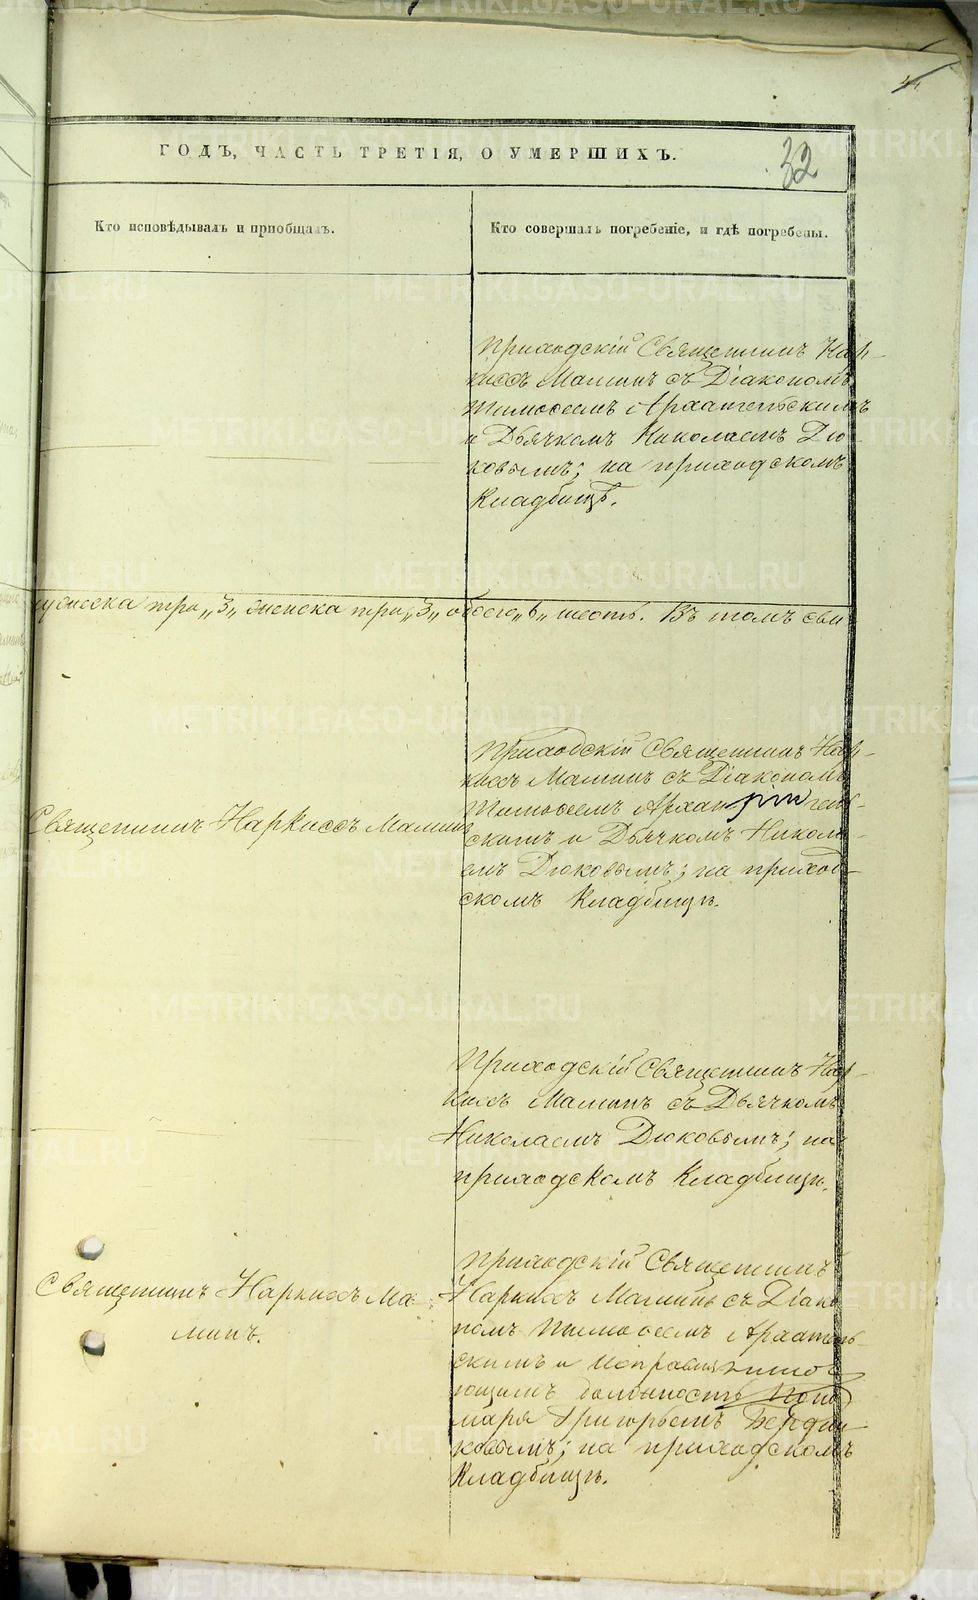 ГОДЪ, ЧАСТЬ ТРЕТІЯ, О УМЕРШИХЪ.
32
Кто исповѣдывалъ и пріобщалъ.
Кто совершалъ погребеніе, и гдѣ погребены.
Приходскій Священникъ Нар-
киссъ Маминъ съ Діакономъ
Тимоѳеемъ Архангельскимъ
и Дьячкомъ Николаемъ Дю
ковымъ; на приходскомъ
Кладбищѣ.
мужеска три „3„ женска три „3„ обоего „6„ шесть. Въ томъ сви
Священникъ Наркиссъ Маминъ
Приходскій Священникъ Нар-
киссъ Маминъ съ Діакономъ
Тимоѳеемъ Архангель-
скимъ и Дьячкомъ Никола-
емъ Дюковымъ; на приход-
скомъ Кладбищѣ.
Приходскій Священникъ Нар-
киссъ Маминъ съ Дьячкомъ
Николаемъ Дюковымъ; на
приходскомъ Кладбищѣ.
Священникъ Наркиссъ Ма-
минъ.
Приходскій Священникъ
Наркиссъ Маминъ съ Діако
номъ Тимоѳеемъ Архангель-
скимъ и исправля
ющимъ должность Поно
маря Григорьемъ
ковымъ; на приходскомъ
Кладбищѣ.
METRIKI.GASO-URAL.RU